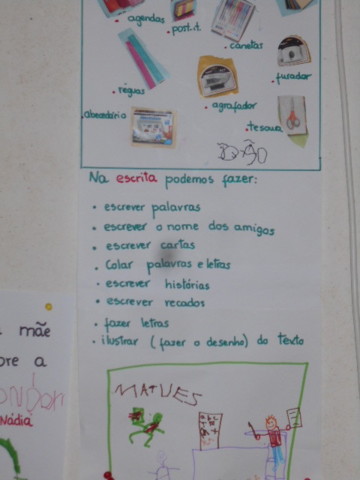 . agendas
. post.it
. canetas
. réguas
. agrafador
. furador
. abecedário
. tesoura
JOÃO
Na escrita podemos fazer:
• escrever palavras
• escrever o nome dos amigos
• escrever cartas
• Colar palavras e letras
• escrever histórias
• escrever recados
• fazer letras
• ilustrar (fazer o desenho) do texto
MATUES
mãe
a
Nádia